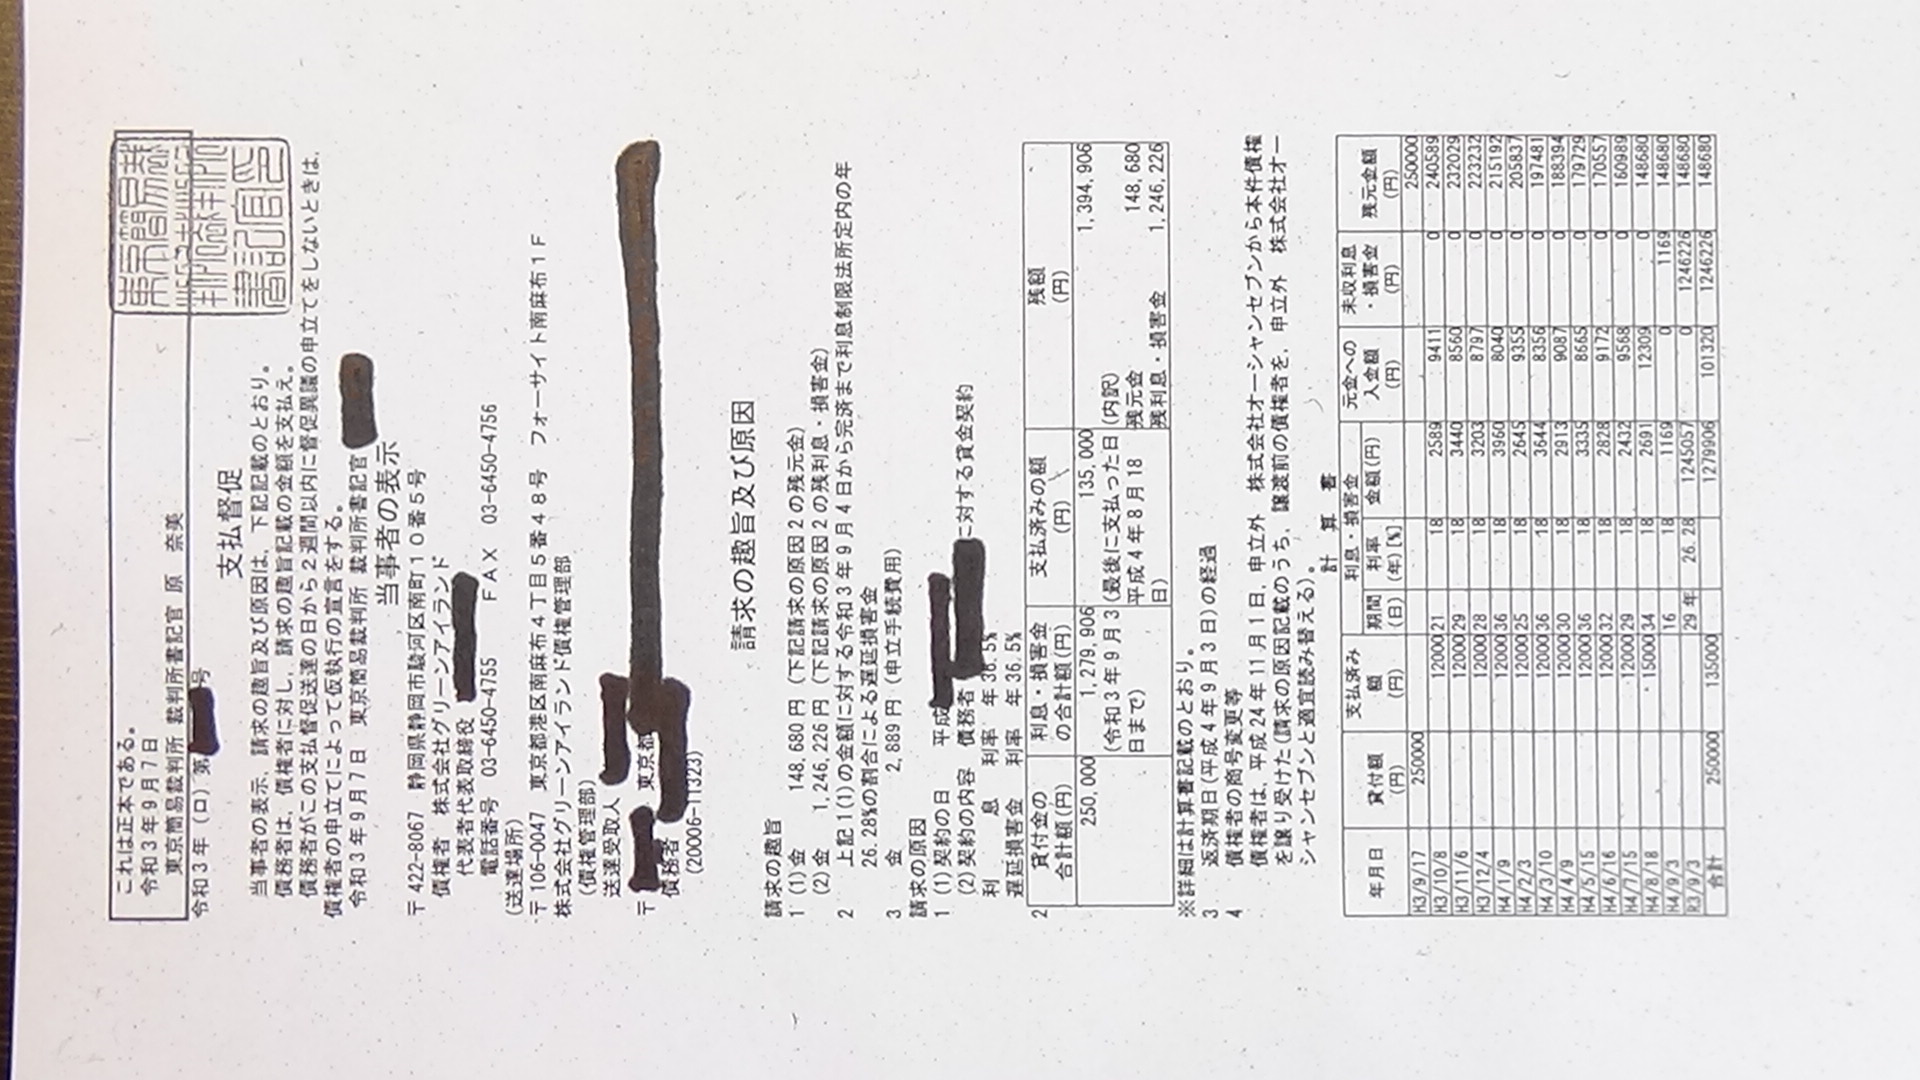 これは正本である。
令和3年9月7日
東京簡易裁判所 裁判所書記官 原 奈美
令和3年(ロ)第 号
支払督促
当事者の表示、請求の趣旨及び原因は、下記記載のとおり。
債務者は、債権者に対し、請求の趣旨記載の金額を支払え。
債務者がこの支払督促送達の日から2週間以内に督促異議の申立てをしないときは、
債権者の申立てによって仮執行の宣言をする。
令和3年9月7日 東京簡易裁判所 裁判所書記官
当事者の表示
〒422-8067 静岡県静岡市駿河区南町10番5号
債権者 株式会社グリーンアイランド
代表者代表取締役
電話番号 03-6450-4755 FAX 03-6450-4756
(送達場所)
〒106-0047 東京都港区南麻布4丁目5番48号 フォーサイト南麻布1F
株式会社グリーンアイランド債権管理部
(債権管理部)
送達受取人
〒 東京都
債務者
(20006-11323)
請求の趣旨及び原因
請求の趣旨
1 (1)金 148,680円(下記請求の原因2の残元金)
(2)金 1,246,226円(下記請求の原因2の残利息・損害金)
2 上記1(1)の金額に対する令和3年9月4日から完済まで利息制限法所定内の年
26.28%の割合による遅延損害金
3 金 2,889円(申立手続費用)
請求の原因
1 (1)契約の日 平成
(2)契約の内容 債務者 に対する貸金契約
利 息 利率 年36.5%
遅延損害金 利率 年36.5%
2
貸付金の合計額(円) 利息・損害金の合計額(円) 支払済みの額(円) 残額(円)
250,000 1,279,906 135,000 1,394,906
(令和3年9月3日まで) (最後に支払った日平成4年8月18日) (内訳)
残元金 148,680
残利息・損害金 1,246,226
※詳細は計算書記載のとおり。
3 返済期日(平成4年9月3日)の経過
4 債権者の商号変更等
債権者は、平成24年11月1日、申立外 株式会社オーシャンセブンから本件債権
を譲り受けた(請求の原因記載のうち、譲渡前の債権者を、申立外 株式会社オー
シャンセブンと適宜読み替える)。
計 算 書
年月日 貸付額(円) 支払済み額(円) 期間(日) 利息・損害金 利率(年)[%] 金額(円) 元金への入金額(円) 未収利息・損害金(円) 残元金額(円)
H3/9/17 250000 250000
H3/10/8 12000 21 18 2589 9411 0 240589
H3/11/6 12000 29 18 3440 8560 0 232029
H3/12/4 12000 28 18 3203 8797 0 223232
H4/1/9 12000 36 18 3960 8040 0 215192
H4/2/3 12000 25 18 2645 9355 0 205837
H4/3/10 12000 36 18 3644 8356 0 197481
H4/4/9 12000 30 18 2913 9087 0 188394
H4/5/15 12000 36 18 3335 8665 0 179729
H4/6/16 12000 32 18 2828 9172 0 170557
H4/7/15 12000 29 18 2432 9568 0 160989
H4/8/18 15000 34 18 2691 12309 0 148680
H4/9/3 16 18 1169 0 1169 148680
R3/9/3 29年 26.28 1245057 0 1246226 148680
合計 250000 135000 1279906 101320 1246226 148680